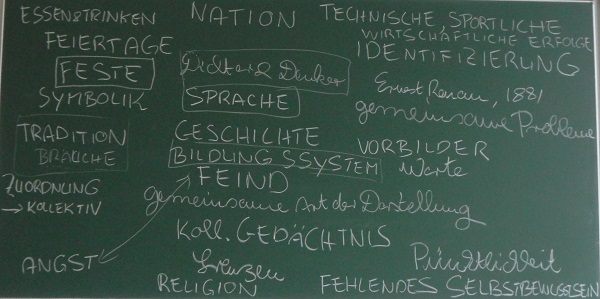 ESSEN & TRINKEN
FEIERTAGE
FESTE
SYMBOLIK
TRADITION
BRÄUCHE
ZUORDNUNG
→ KOLLEKTIV
ANGST
NATION
Dichter & Denker
SPRACHE
GESCHICHTE
BILDUNGSSYSTEM
FEIND
gemeinsame Art der Darstellung
Koll. GEDÄCHTNIS
Grenzen
RELIGION
TECHNISCHE, SPORTLICHE
WIRTSCHAFTLICHE ERFOLGE
IDENTIFIZIERUNG
Ernest Renan, 1881
gemeinsame Probleme
VORBILDER
Werte
Pünktlichkeit
FEHLENDES SELBSTBEWUSSTSEIN